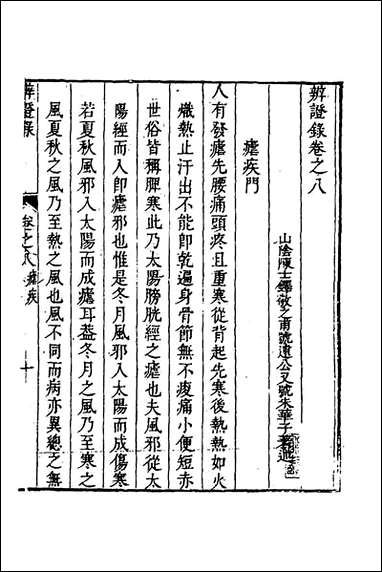 辨證錄卷之八
山陰陳士鐸敬之甫號遠公又號朱華子著述
瘧疾門
人有發瘧先腰痛頭疼且重寒從背起先寒後熱熱如火
熾熱止汗出不能卽乾遍身骨節無不痠痛小便短赤
世俗皆稱脾寒此乃太陽膀胱經之瘧也夫風邪從太
陽經而人卽瘧邪也惟是冬月風邪入太陽而成傷寒
若夏秋風邪入太陽而成瘧耳蓋冬月之風乃至寒之
風夏秋之風乃至熱之風也風不同而病亦異總之無
辨證錄
卷之八 瘧疾
十